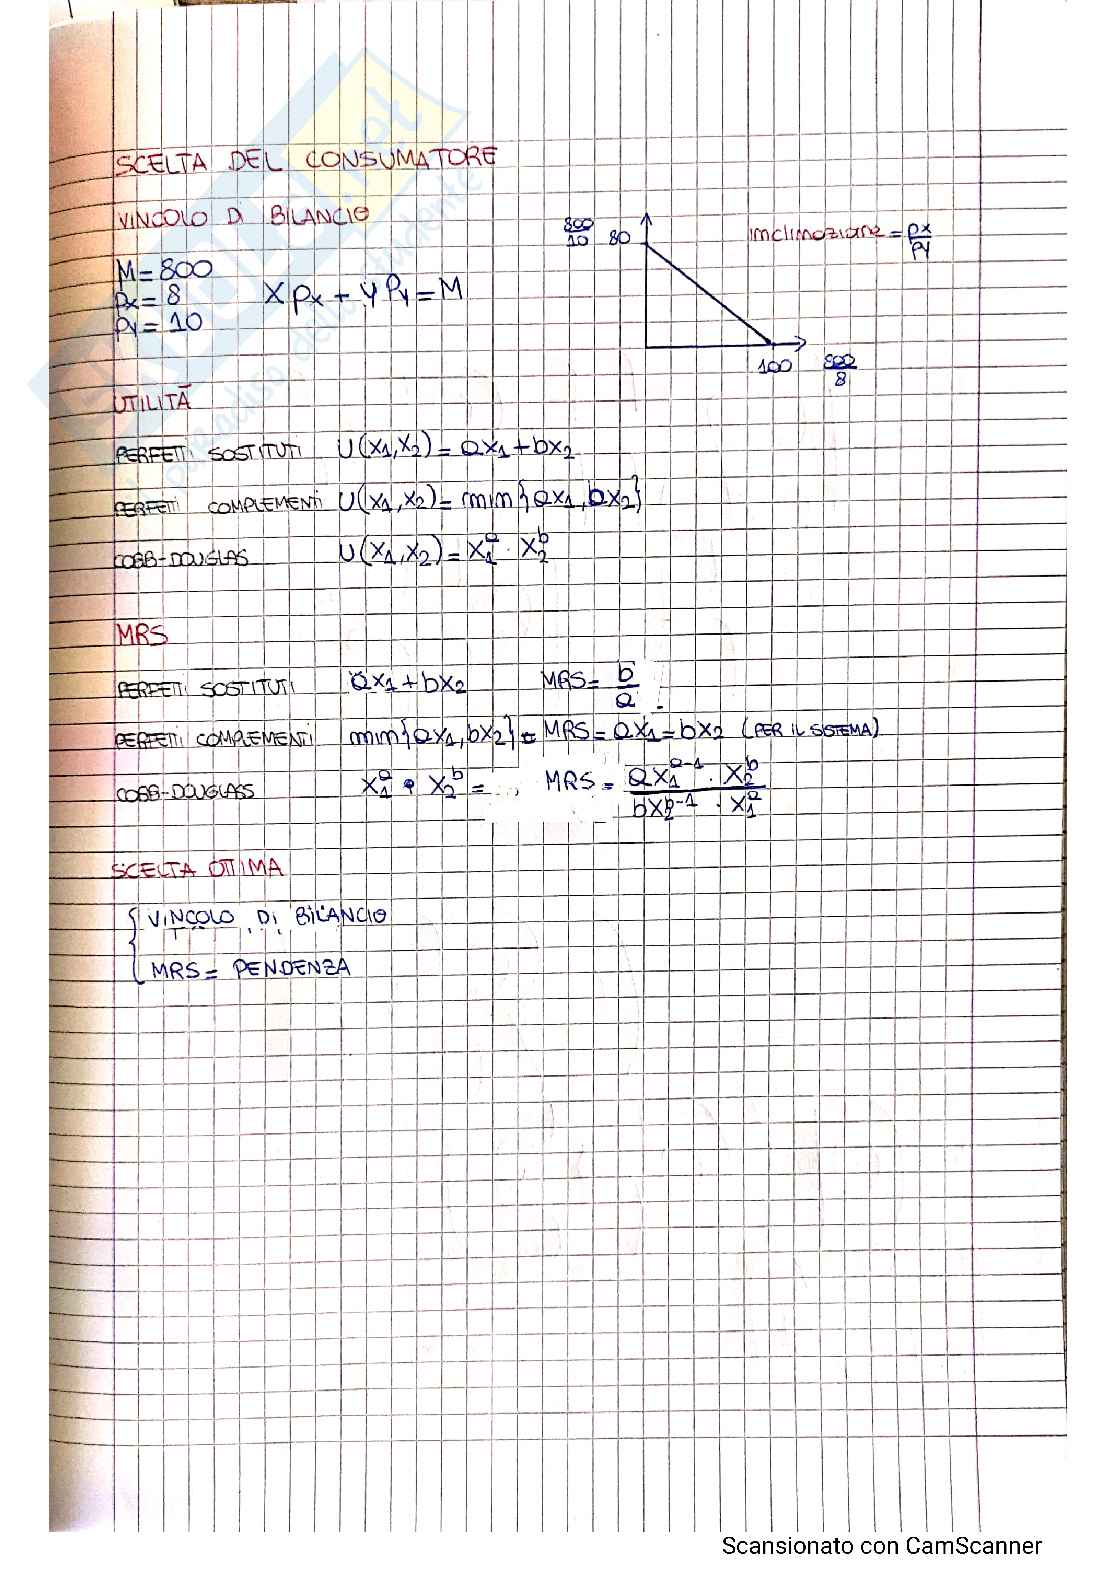 SCELTA DEL CONSUMATORE
VINCOLO DI BILANCIO
M = 800
px = 8
py = 10
X px + y Py = M
800/10 80
100 800/8
inclinazione = px/py
UTILITÀ
PERFETTI SOSTITUTI U(x1, x2) = ax1 + bx2
PERFETTI COMPLEMENTI U(x1, x2) = min{ax1, bx2}
COBB-DOUGLAS U(x1, x2) = x1^a · x2^b
MRS
PERFETTI SOSTITUTI ax1 + bx2 MRS = b/a
PERFETTI COMPLEMENTI min{ax1, bx2} = MRS = ax1 = bx2 (PER IL SISTEMA)
COBB-DOUGLASS x1^a · x2^b = MRS = ax1^a-1 · x2^b / bx2^b-1 · x1^a
SCELTA OTTIMA
{ VINCOLO DI BILANCIO
MRS = PENDENZA
Scansionato con CamScanner